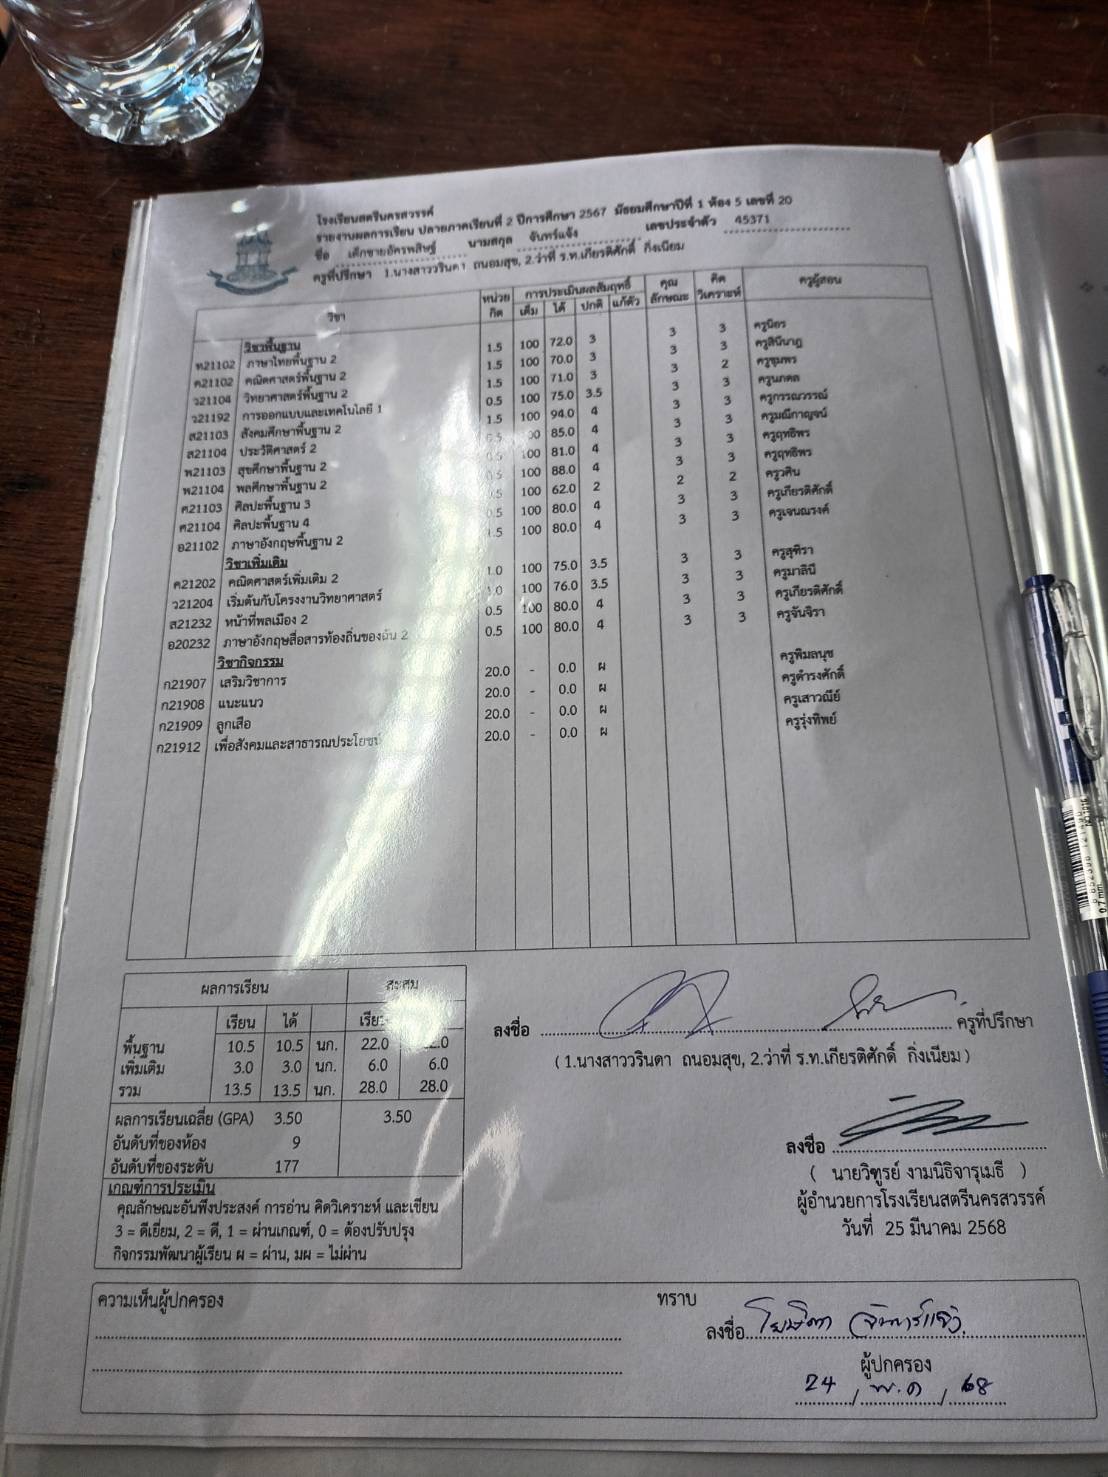 โรงเรียนสตรีนครสวรรค์
รายงานผลการเรียน ปลายภาคเรียนที่ 2 ปีการศึกษา 2567 มัธยมศึกษาปีที่ 1 ห้อง 5 เลขที่ 20
ชื่อ เด็กชายอัครพสิษฐ์ นามสกุล จันทร์แจ้ง เลขประจำตัว 45371
ครูที่ปรึกษา 1.นางสาววรินดา ถนอมสุข, 2.ว่าที่ ร.ท.เกียรติศักดิ์ กิ่งเนียม
วิชา หน่วยกิต การประเมินผลสัมฤทธิ์ คุณลักษณะ คิดวิเคราะห์ ครูผู้สอน
เต็ม ได้ ปกติ แก้ตัว
วิชาพื้นฐาน
ท21102 ภาษาไทยพื้นฐาน 2 1.5 100 72.0 3 3 3 ครูนิยร
ค21102 คณิตศาสตร์พื้นฐาน 2 1.5 100 70.0 3 3 3 ครูสินีนาฏ
ว21104 วิทยาศาสตร์พื้นฐาน 2 1.5 100 71.0 3 3 2 ครูชุมพร
ว21192 การออกแบบและเทคโนโลยี 1 0.5 100 75.0 3.5 3 3 ครูนภดล
ส21103 สังคมศึกษาพื้นฐาน 2 1.5 100 94.0 4 3 3 ครูกรรณวรรณ์
ส21104 ประวัติศาสตร์ 2 0.5 100 85.0 4 3 3 ครูมณีกาญจน์
พ21103 สุขศึกษาพื้นฐาน 2 0.5 100 81.0 4 3 3 ครูฤทธิพร
พ21104 พลศึกษาพื้นฐาน 2 0.5 100 88.0 4 3 3 ครูฤทธิพร
ศ21103 ศิลปะพื้นฐาน 3 0.5 100 62.0 2 2 2 ครูวศิน
ศ21104 ศิลปะพื้นฐาน 4 0.5 100 80.0 4 3 3 ครูเกียรติศักดิ์
อ21102 ภาษาอังกฤษพื้นฐาน 2 1.5 100 80.0 4 3 3 ครูเจนณรงค์
วิชาเพิ่มเติม
ค21202 คณิตศาสตร์เพิ่มเติม 2 1.0 100 75.0 3.5 3 3 ครูสุฑิรา
ว21204 เริ่มต้นกับโครงงานวิทยาศาสตร์ 1.0 100 76.0 3.5 3 3 ครูมาลินี
ส21232 หน้าที่พลเมือง 2 0.5 100 80.0 4 3 3 ครูเกียรติศักดิ์
อ20232 ภาษาอังกฤษสื่อสารท้องถิ่นของฉัน 2 0.5 100 80.0 4 3 3 ครูจันจิรา
วิชากิจกรรม
ก21907 เสริมวิชาการ 20.0 - 0.0 ผ ครูพิมลนุช
ก21908 แนะแนว 20.0 - 0.0 ผ ครูดำรงศักดิ์
ก21909 ลูกเสือ 20.0 - 0.0 ผ ครูเสาวณีย์
ก21912 เพื่อสังคมและสาธารณประโยชน์ 20.0 - 0.0 ผ ครูรุ่งทิพย์
ผลการเรียน สะสม
เรียน ได้ เรียน
พื้นฐาน 10.5 10.5 นก. 22.0
เพิ่มเติม 3.0 3.0 นก. 6.0 6.0
รวม 13.5 13.5 นก. 28.0 28.0
ผลการเรียนเฉลี่ย (GPA) 3.50 3.50
อันดับที่ของห้อง 9
อันดับที่ของระดับ 177
เกณฑ์การประเมิน
คุณลักษณะอันพึงประสงค์ การอ่าน คิดวิเคราะห์ และเขียน
3 = ดีเยี่ยม, 2 = ดี, 1 = ผ่านเกณฑ์, 0 = ต้องปรับปรุง
กิจกรรมพัฒนาผู้เรียน ผ = ผ่าน, มผ = ไม่ผ่าน
ลงชื่อ ครูที่ปรึกษา
(1.นางสาววรินดา ถนอมสุข, 2.ว่าที่ ร.ท.เกียรติศักดิ์ กิ่งเนียม)
ลงชื่อ
( นายวิฑูรย์ งามนิธิจารุเมธี )
ผู้อำนวยการโรงเรียนสตรีนครสวรรค์
วันที่ 25 มีนาคม 2568
ความเห็นผู้ปกครอง
ทราบ
ลงชื่อ โยษิตา จันทร์แจ้ง
ผู้ปกครอง
24 / พ.ค / 68
0.7 mm